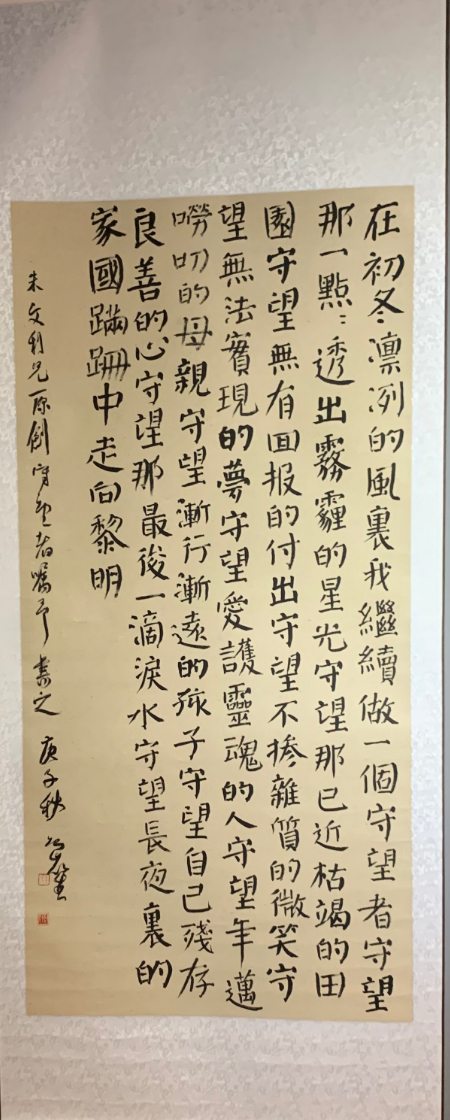 在初冬凛冽的風裏我繼續做一個守望者守望
那一點點透出霧霾的星光守望那已近枯竭的田
園守望無有回报的付出守望不摻雜質的微笑守
望無法實現的夢守望愛護靈魂的人守望年邁
嘮叨的母親守望漸行漸遠的孩子守望自己殘存
良善的心守望那最後一滴淚水守望長夜裏的
家國蹣跚中走向黎明
朱文利兄原創守望者嘱予書之 庚子秋